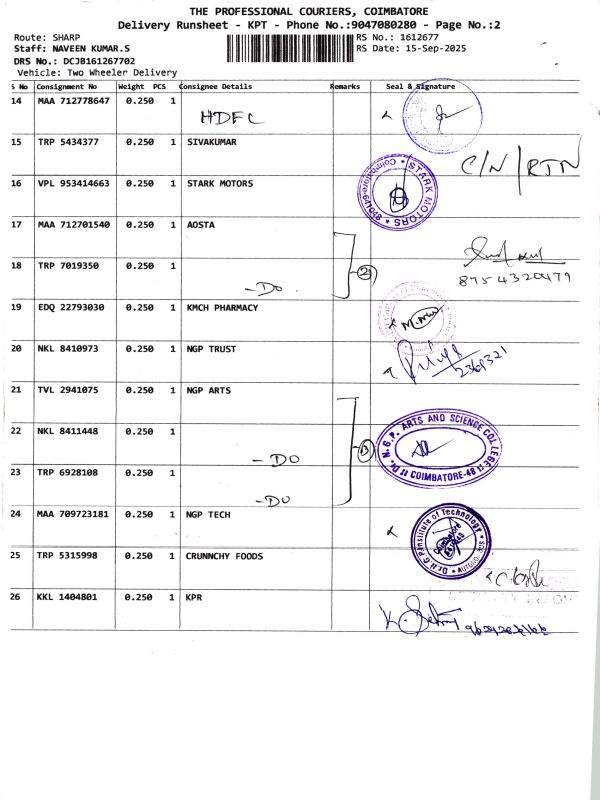 THE PROFESSIONAL COURIERS, COIMBATORE
Delivery Runsheet - KPT - Phone No.:9047080280 - Page No.:2
Route: SHARP
RS No.: 1612677
Staff: NAVEEN KUMAR.S
RS Date: 15-Sep-2025
DRS No.: DCJB161267702
Vehicle: Two Wheeler Delivery
S No Consignment No Weight PCS Consignee Details Remarks Seal & Signature
14 MAA 712778647 0.250 1 HDFC
15 TRP 5434377 0.250 1 SIVAKUMAR C/N/RTN
16 VPL 953414663 0.250 1 STARK MOTORS STARK MOTORS
17 MAA 712701540 0.250 1 AOSTA
18 TRP 7019350 0.250 1 -Do. 2 8754320479
19 EDQ 22793030 0.250 1 KMCH PHARMACY
20 NKL 8410973 0.250 1 NGP TRUST
21 TVL 2941075 0.250 1 NGP ARTS
22 NKL 8411448 0.250 1 - DO 3 Dr. N.G.P. ARTS AND SCIENCE COLLEGE COIMBATORE-48
23 TRP 6928108 0.250 1 - DO
24 MAA 709723181 0.250 1 NGP TECH Dr. N.G.P Institute of Technology Coimbatore
25 TRP 5315998 0.250 1 CRUNNCHY FOODS
26 KKL 1404801 0.250 1 KPR